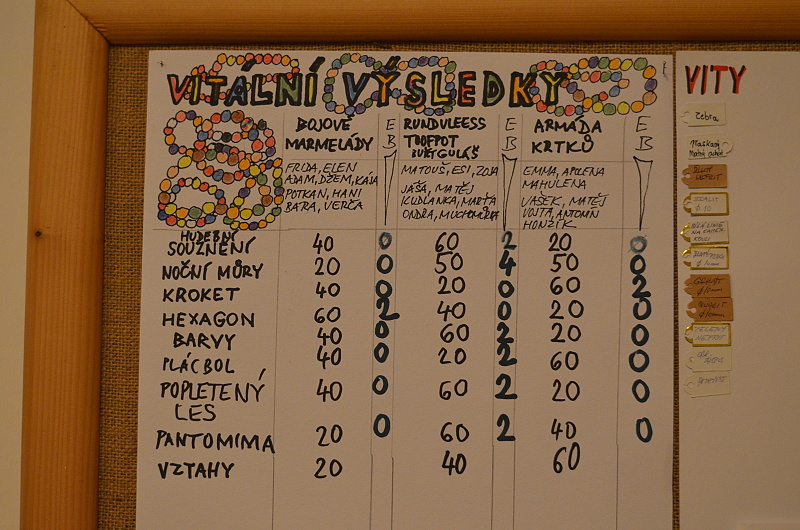 VITÁLNÍ VÝSLEDKY
BOJOVÉ MARMELÁDY
E B
RUNDVLEESS TOOFPOT GULÁŠ
E B
ARMÁDA KRTKŮ
E B
FRIDA, ELEN
ADAM, DŽEM, KÁJA
POTKAN, HANI
BARA, VERČA
MATOUŠ, ESI, ZOJA
JÁŠA, MATĚJ
KUDLANKA, MARŤA
ONDRA, MUCHOMŮRKA
EMMA, APOLENA
MAHULENA
VAŠEK, MATĚJ
VOJTA, ANTONÍN
HONZÍK
HUDEBNÍ
SOUZNĚNÍ 40 0 60 2 20 0
NOČNÍ MŮRY 20 0 50 4 50 0
KROKET 40 0 20 0 60 2
HEXAGON 60 2 40 0 20 0
BARVY 40 0 60 2 20 0
PLÁCBOL 40 0 20 2 60 0
POPLETENÝ LES 40 0 60 2 20 0
PANTOMIMA 20 0 60 2 40 0
VZTAHY 20 40 60
VITY
Zebra